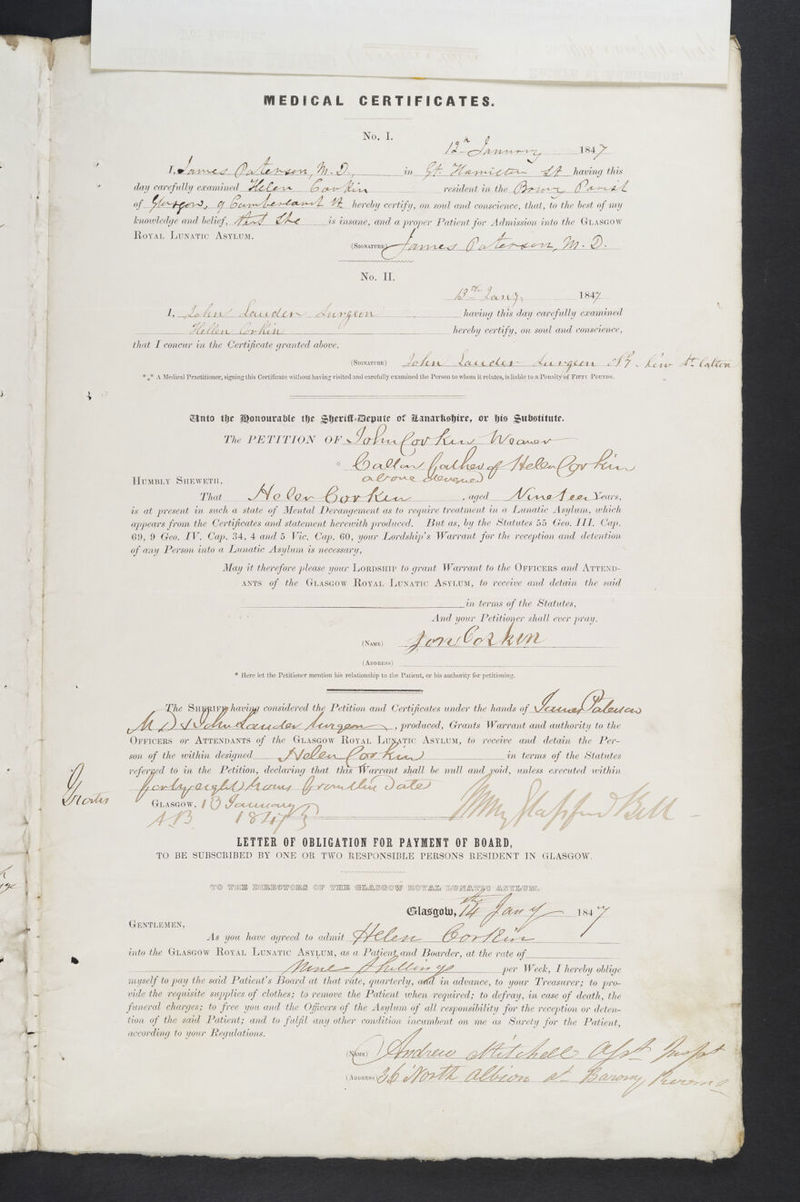 MEDICAL CERTIFICATES.
No. I.
12th January 1847
I, James Paterson, M.D., in Gt. Hamilton St having this
day carefully examined Helen Corkin resident in the Parish
of Glasgow, 9 Cumberland St hereby certify, on soul and conscience, that, to the best of my
knowledge and belief, that She is insane, and a proper Patient for Admission into the GLASGOW
ROYAL LUNATIC ASYLUM.
(SIGNATURE) James Paterson, M.D.
No. II.
13th Jany. 1847
I, John Lauder Surgeon having this day carefully examined
Hellen Corkin hereby certify, on soul and conscience,
that I concur in the Certificate granted above.
(SIGNATURE) John Lauder Surgeon New St. Calton
*** A Medical Practitioner, signing this Certificate without having visited and carefully examined the Person to whom it relates, is liable to a Penalty of FIFTY POUNDS.
Unto the Honourable the Sheriff-Depute of Lanarkshire, or his Substitute.
The PETITION OF John Corkin Weaver
* Calton father of Helen Corkin
above designed
HUMBLY SHEWETH,
That Helen Corkin, aged Nineteen Years,
is at present in such a state of Mental Derangement as to require treatment in a Lunatic Asylum, which
appears from the Certificates and statement herewith produced. But as, by the Statutes 55 Geo. III. Cap.
69, 9 Geo. IV. Cap. 34, 4 and 5 Vic. Cap. 60, your Lordship's Warrant for the reception and detention
of any Person into a Lunatic Asylum is necessary,
May it therefore please your LORDSHIP to grant Warrant to the OFFICERS and ATTEND-
ANTS of the GLASGOW ROYAL LUNATIC ASYLUM, to receive and detain the said
in terms of the Statutes,
And your Petitioner shall ever pray.
(NAME) Jon Corkin
(ADDRESS)
* Here let the Petitioner mention his relationship to the Patient, or his authority for petitioning.
The SHERIFF having considered the Petition and Certificates under the hands of James Paterson
M D & John Lauder Surgeon, produced, Grants Warrant and authority to the
OFFICERS or ATTENDANTS of the GLASGOW ROYAL LUNATIC ASYLUM, to receive and detain the Per-
son of the within designed Helen Corkin in terms of the Statutes
referred to in the Petition, declaring that this Warrant shall be null and void, unless executed within
forty eight hours from this date
Gratis
GLASGOW, 13 January
1847
LETTER OF OBLIGATION FOR PAYMENT OF BOARD,
TO BE SUBSCRIBED BY ONE OR TWO RESPONSIBLE PERSONS RESIDENT IN GLASGOW.
TO THE DIRECTORS OF THE GLASGOW ROYAL LUNATIC ASYLUM.
Glasgow, 14th Jany 1847
GENTLEMEN,
As you have agreed to admit Helen Corkin
into the GLASGOW ROYAL LUNATIC ASYLUM, as a Patient and Boarder, at the rate of
Nine Shillings per Week, I hereby oblige
myself to pay the said Patient's Board at that rate, quarterly, and in advance, to your Treasurer; to pro-
vide the requisite supplies of clothes; to remove the Patient when required; to defray, in case of death, the
funeral charges; to free you and the Officers of the Asylum of all responsibility for the reception or deten-
tion of the said Patient; and to fulfil any other condition incumbent on me as Surety for the Patient,
according to your Regulations.
(NAME) Andrew Mitchell Asst Inspr
(ADDRESS) 36 North Albion St Barony